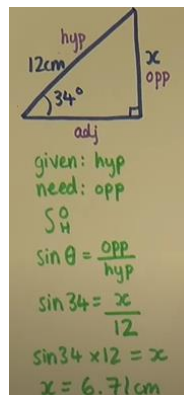 hyp
12cm
x
opp
34°
adj
given: hyp
need: opp
SOH
sin θ = opp/hyp
sin 34 = x/12
sin 34 × 12 = x
x = 6.71cm